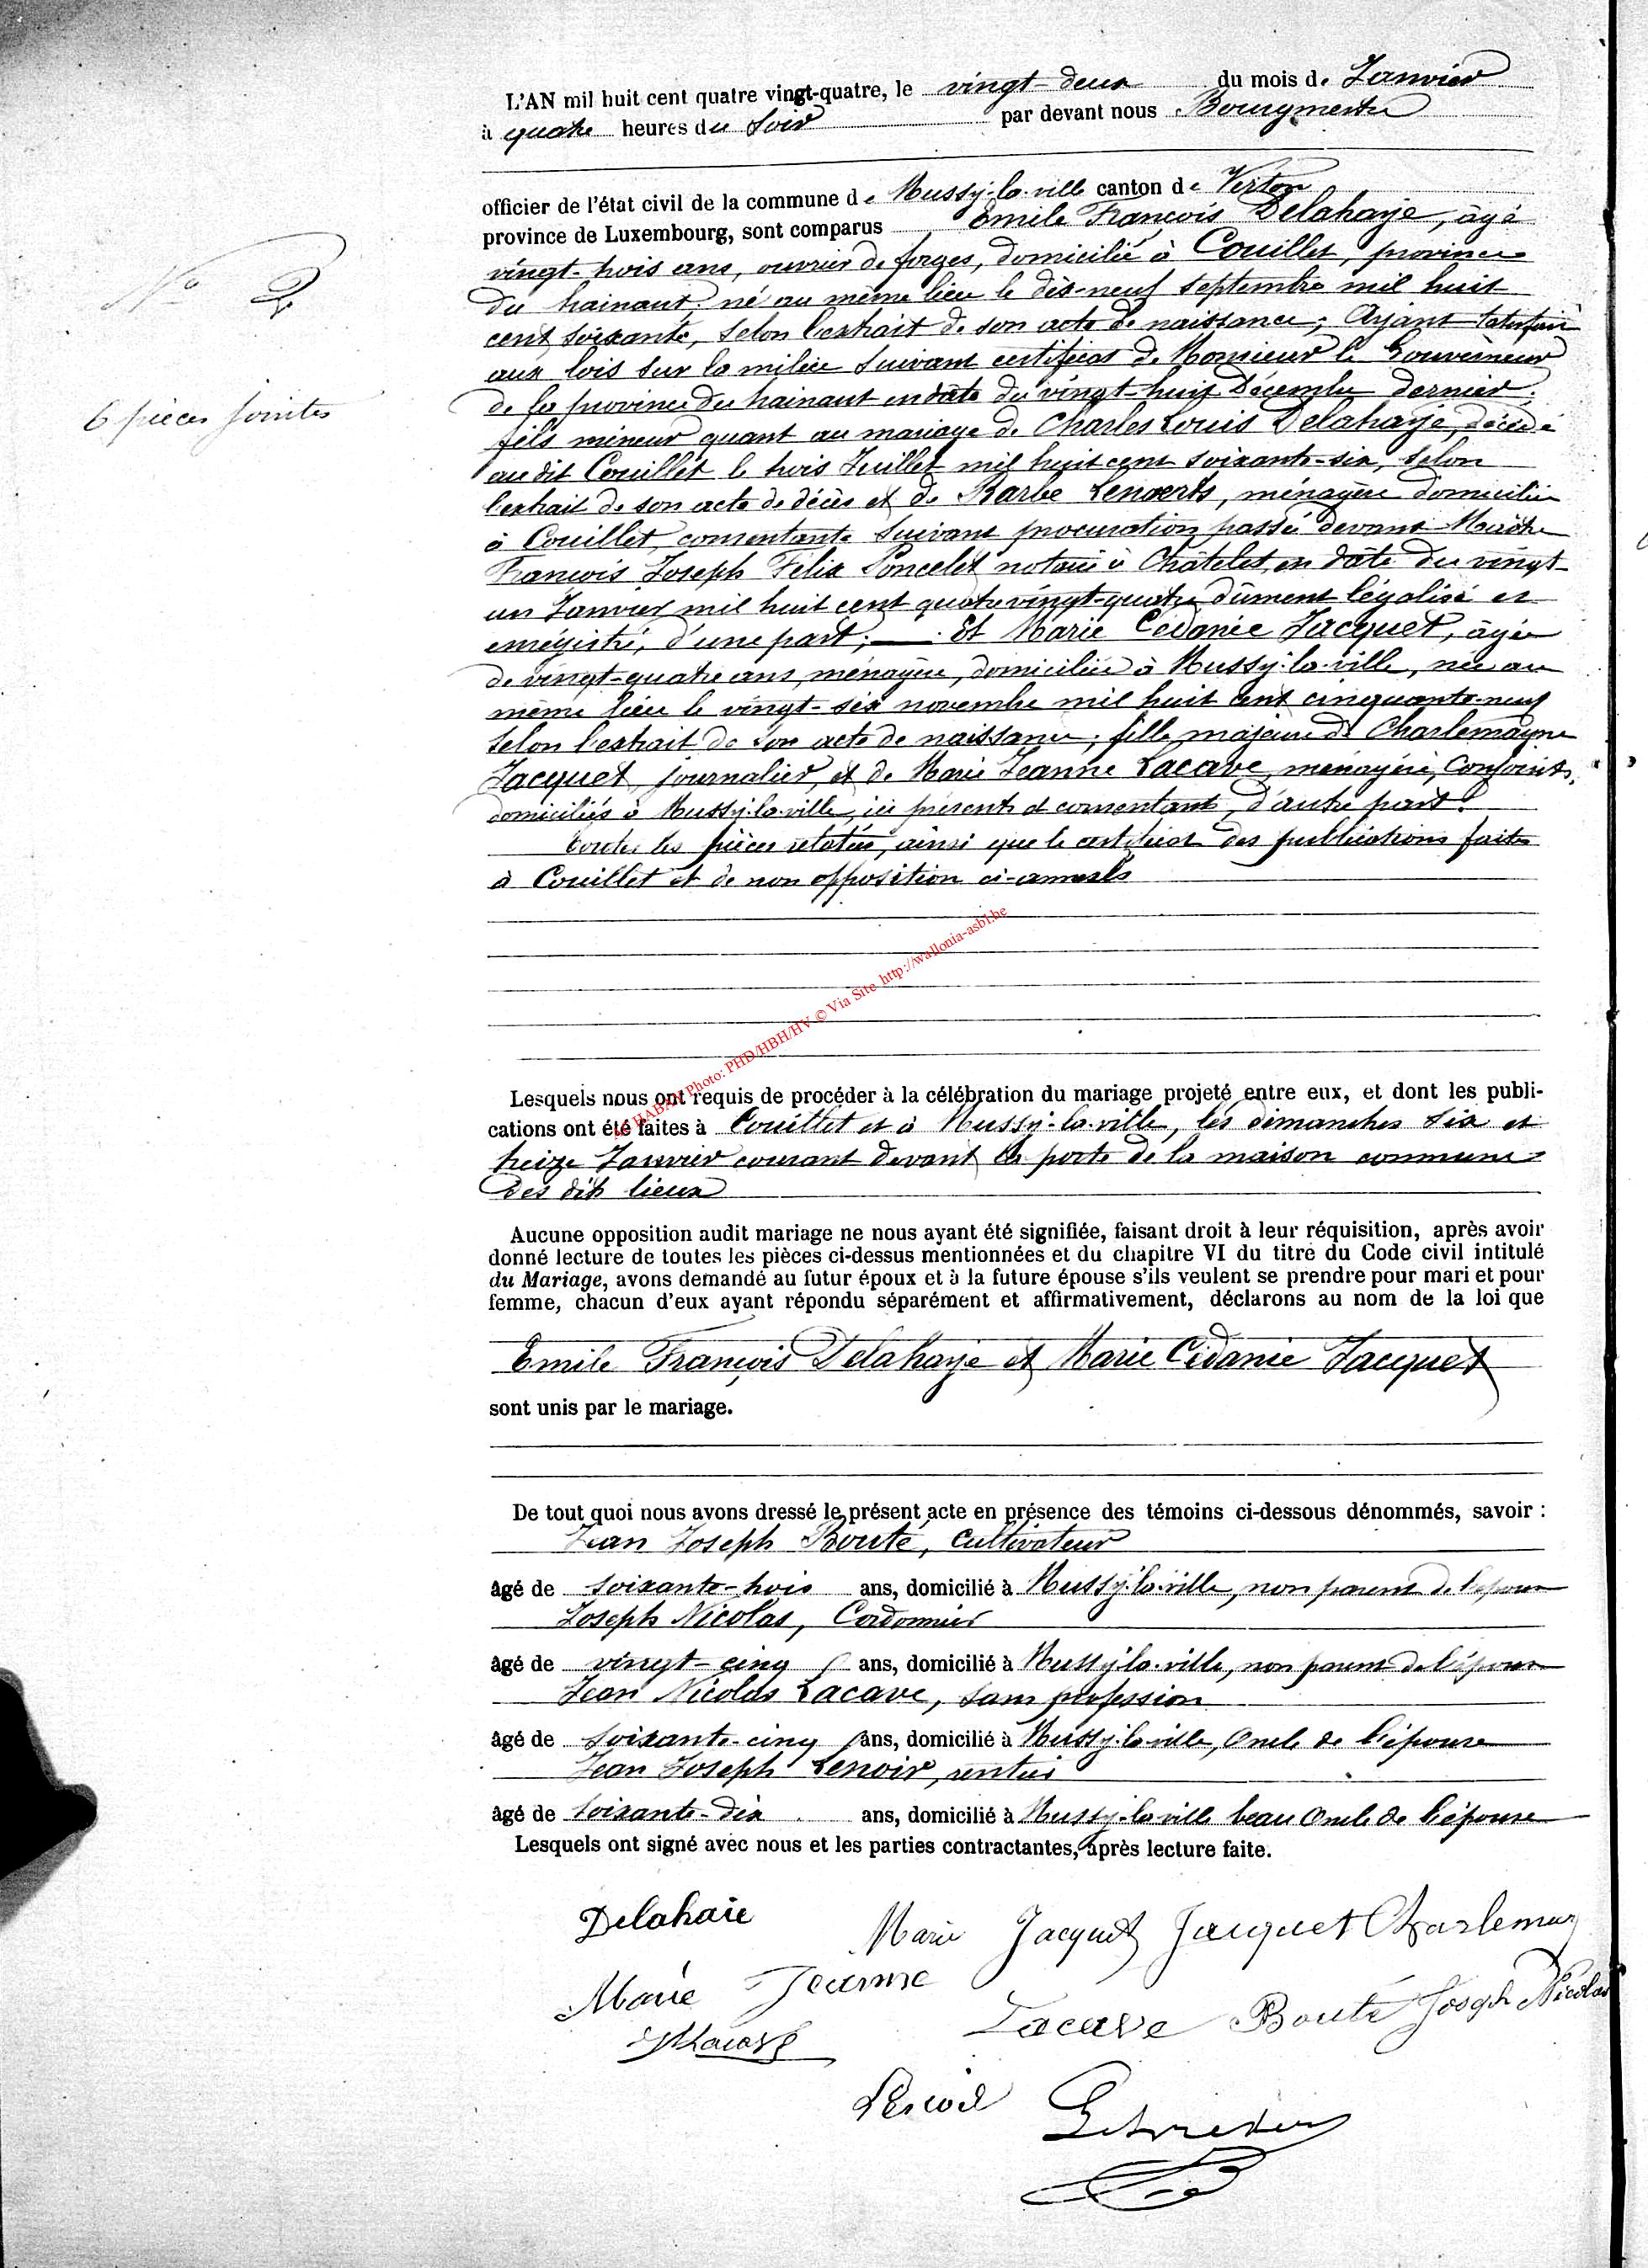 L'AN mil huit cent quatre vingt-quatre, le vingt-deux du mois de Janvier
à quatre heures du Soir par devant nous Bourgmestre
officier de l'état civil de la commune de Mussy-la-ville canton de Virton
province de Luxembourg, sont comparus Emile François Delahaye, âgé
vingt-trois ans, ouvrier de forges, domicilié à Couillet, province
du hainaut, né au même lieu le dix-neuf Septembre mil huit
cent soixante, selon l'extrait de son acte de naissance; Ayant satisfait
aux lois sur la milice suivant certificat de Monsieur le Gouverneur
de la province du hainaut en date du vingt-huit Décembre dernier;
fils mineur quant au mariage de Charles Louis Delahaye, décédé
au dit Couillet le trois Juillet mil huit cent soixante-six, selon
l'extrait de son acte de décès et de Barbe Lenaerts, ménagère domiciliée
à Couillet, consentante suivant procuration passée devant Maître
François Joseph Félix Poncelet notaire à Châtelet, en date du vingt-
un Janvier mil huit cent quatre vingt-quatre dûment légalisé et
enrégistré, d'une part; Et Marie Cédanie Jacquet, âgée
de vingt-quatre ans, ménagère, domiciliée à Mussy-la-ville, née au
même lieu le vingt-six novembre mil huit cent cinquante-neuf
selon l'extrait de son acte de naissance; fille majeure de Charlemagne
Jacquet, journalier, et de Marie Jeanne Lacave, ménagère, conjoints,
domiciliés à Mussy-la-ville, ici présents et consentant, d'autre part.
Toutes les pièces relatées, ainsi que le certificat des publications faites
à Couillet et de non opposition ci-annexés
N° 2
6 pièces jointes
HABAY Photo: PHD/HBH/HV © Via Site http://wallonia-asbl.be
Lesquels nous ont requis de procéder à la célébration du mariage projeté entre eux, et dont les publi-
cations ont été faites à Couillet et à Mussy-la-ville, les dimanches six et
treize Janvier courant devant la porte de la maison commune
des dits lieux
Aucune opposition audit mariage ne nous ayant été signifiée, faisant droit à leur réquisition, après avoir
donné lecture de toutes les pièces ci-dessus mentionnées et du chapitre VI du titre du Code civil intitulé
du Mariage, avons demandé au futur époux et à la future épouse s'ils veulent se prendre pour mari et pour
femme, chacun d'eux ayant répondu séparément et affirmativement, déclarons au nom de la loi que
Emile François Delahaye et Marie Cédanie Jacquet
sont unis par le mariage.
De tout quoi nous avons dressé le présent acte en présence des témoins ci-dessous dénommés, savoir :
Jean Joseph Bouté, Cultivateur
âgé de soixante-trois ans, domicilié à Mussy-la-ville, non parent de l'époux
Joseph Nicolas, Cordonnier
âgé de vingt-cinq ans, domicilié à Mussy-la-ville, non parent de l'époux
Jean Nicolas Lacave, sans profession
âgé de soixante-cinq ans, domicilié à Mussy-la-ville, Oncle de l'épouse
Jean Joseph Lenoir, rentier
âgé de soixante-dix ans, domicilié à Mussy-la-ville beau Oncle de l'épouse
Lesquels ont signé avec nous et les parties contractantes, après lecture faite.
Delahaie Marie Jacquet Jacquet Charlemag
Marie Jeanne Lacave Bouté Joseph Nicolas
Lenoir